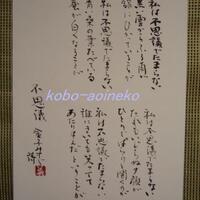 私は不思議でたまらない
黒い雲からふる雨が
銀にひかっていることが
私は不思議でたまらない
青い桑の葉たべている
蚕が白くなることが
私は不思議でたまらない
たれもいじらぬ夕顔が
ひとりでぱらりと開くのが
私は不思議でたまらない
誰にきいても笑ってて
あたりまえだということが
不思議 金子みすゞ 詩
kobo-aoineko